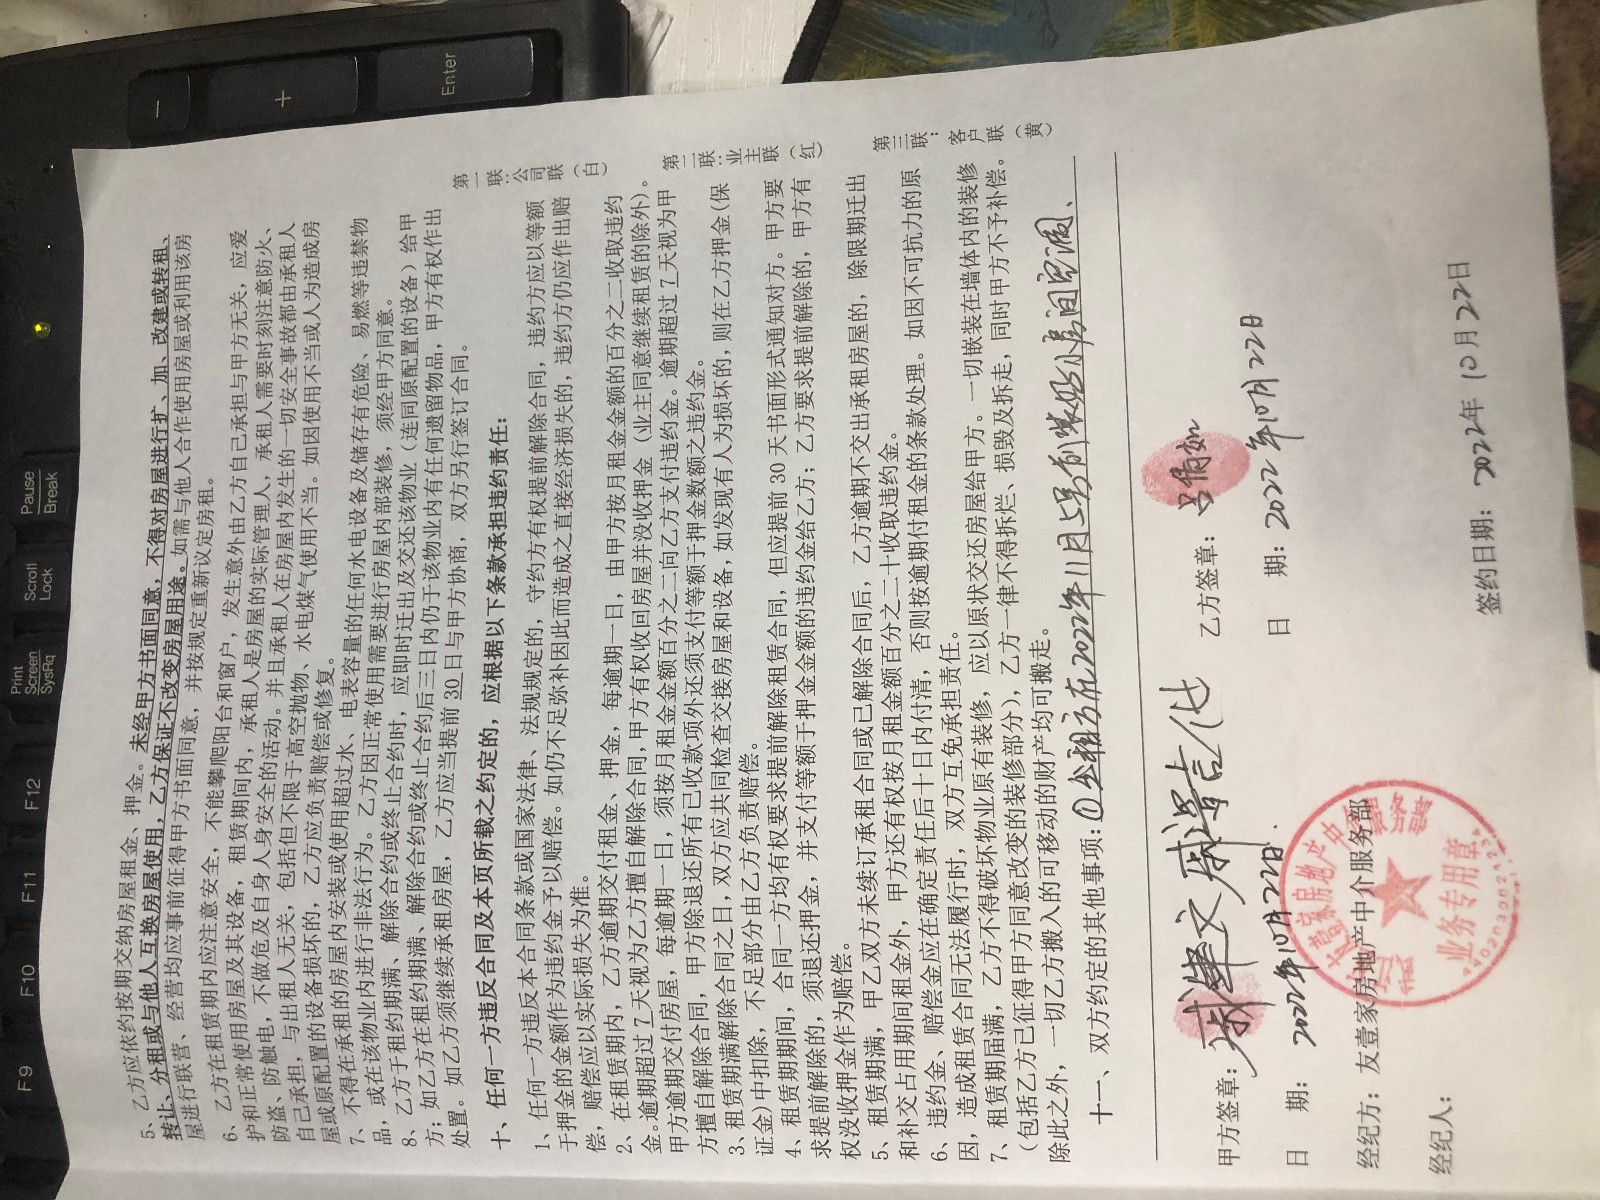 5、乙方应依约按期交纳房屋租金、押金。未经甲方书面同意，不得对房屋进行扩、加、改建或转租、
转让、分租或与他人互换房屋使用，乙方保证不改变房屋用途。如需与他人合作使用房屋或利用该房
屋进行联营、经营均应事前征得甲方书面同意，并按规定重新议定房租。
6、乙方在租赁期内应注意安全，不能攀爬阳台和窗户，发生意外由乙方自己承担与甲方无关，应爱
护和正常使用房屋及其设备，租赁期间内，承租人是房屋的实际管理人，承租人需要时刻注意防火、
防盗、防触电，不做危及自身人身安全的活动。并且承租人在房屋内发生的一切安全事故都由承租人
自己承担，与出租人无关，包括但不限于高空抛物、水电煤气使用不当。如因使用不当或人为造成房
屋或原配置的设备损坏的，乙方应负责赔偿或修复。
7、不得在承租的房屋内安装或使用超过水、电表容量的任何水电设备及储存有危险、易燃等违禁物
品，或在该物业内进行非法行为。乙方因正常使用需要进行房屋内部装修，须经甲方同意。
8、乙方于租约期满、解除合约或终止合约时，应即时迁出及交还该物业（连同原配置的设备）给甲
方；如乙方在租约期满、解除合约或终止合约后三日内仍于该物业内有任何遗留物品，甲方有权作出
处置。如乙方须继续承租房屋，乙方应当提前 30 日与甲方协商，双方另行签订合同。
十、任何一方违反合同及本页所载之约定的，应根据以下条款承担违约责任：
1、任何一方违反本合同条款或国家法律、法规规定的，守约方有权提前解除合同，违约方应以等额
于押金的金额作为违约金予以赔偿。如仍不足弥补因此而造成之直接经济损失的，违约方仍应作出赔
偿，赔偿应以实际损失为准。
2、在租赁期内，乙方逾期交付租金、押金，每逾期一日，由甲方按月租金金额的百分之二收取违约
金。逾期超过 7 天视为乙方擅自解除合同，甲方有权收回房屋并没收押金（业主同意继续租赁的除外）。
甲方逾期交付房屋，每逾期一日，须按月租金金额百分之二向乙方支付违约金。逾期超过 7 天视为甲
方擅自解除合同，甲方除退还所有已收款项外还须支付等额于押金数额之违约金。
3、租赁期满解除合同之日，双方应共同检查交接房屋和设备，如发现有人为损坏的，则在乙方押金（保
证金）中扣除，不足部分由乙方负责赔偿。
4、租赁期期间，合同一方均有权要求提前解除租赁合同，但应提前 30 天书面形式通知对方。甲方要
求提前解除的，须退还押金，并支付等额于押金金额的违约金给乙方；乙方要求提前解除的，甲方有
权没收押金作为赔偿。
5、租赁期满，甲乙双方未续订承租合同或已解除合同后，乙方逾期不交出承租房屋的，除限期迁出
和补交占用期间租金外，甲方还有权按月租金额百分之二十收取违约金。
6、违约金、赔偿金应在确定责任后十日内付清，否则按逾期付租金的条款处理。如因不可抗力的原
因，造成租赁合同无法履行时，双方互免承担责任。
7、租赁期届满，乙方不得破坏物业原有装修，应以原状交还房屋给甲方。一切嵌装在墙体内的装修
（包括乙方已征得甲方同意改变的装修部分），乙方一律不得拆烂、损毁及拆走，同时甲方不予补偿。
除此之外，一切乙方搬入的可移动的财产均可搬走。
十一、双方约定的其他事项：①出租方在2022年11月上号前装好小房间空调、
第一联：公司联（白）
第二联：业主联（红）
第三联：客户联（黄）
甲方签章：
乙方签章：吕倩如
日 期：2022年10月22日.
日 期：2022年10月22日
经纪方：友壹家房地产中介服务部
业务专用章
经纪人：
签约日期：2022年 10月 22日
Print Screen SysRq
Scroll Lock
Pause Break
F9
F10
F11
F12
−
+
Enter